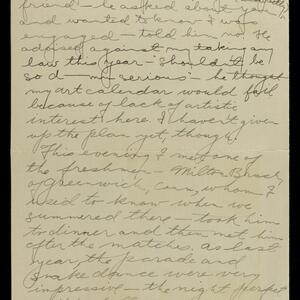 friend — he asked about
and wanted to know if I was
engaged — told him no. He
advised against my taking any
law this year — should to be
so d— my serious — he thought
my art calendar would fail
because of lack of artistic
interest here. I haven't given
up the plan yet, though.
This evening I met one of
the freshmen — Milton
of Greenwich, Conn, whom I
used to know when we
summered there — took him
to dinner and then met him
after the matches. As last
year, the parade and
snake dance were very
impressive — the night perfect